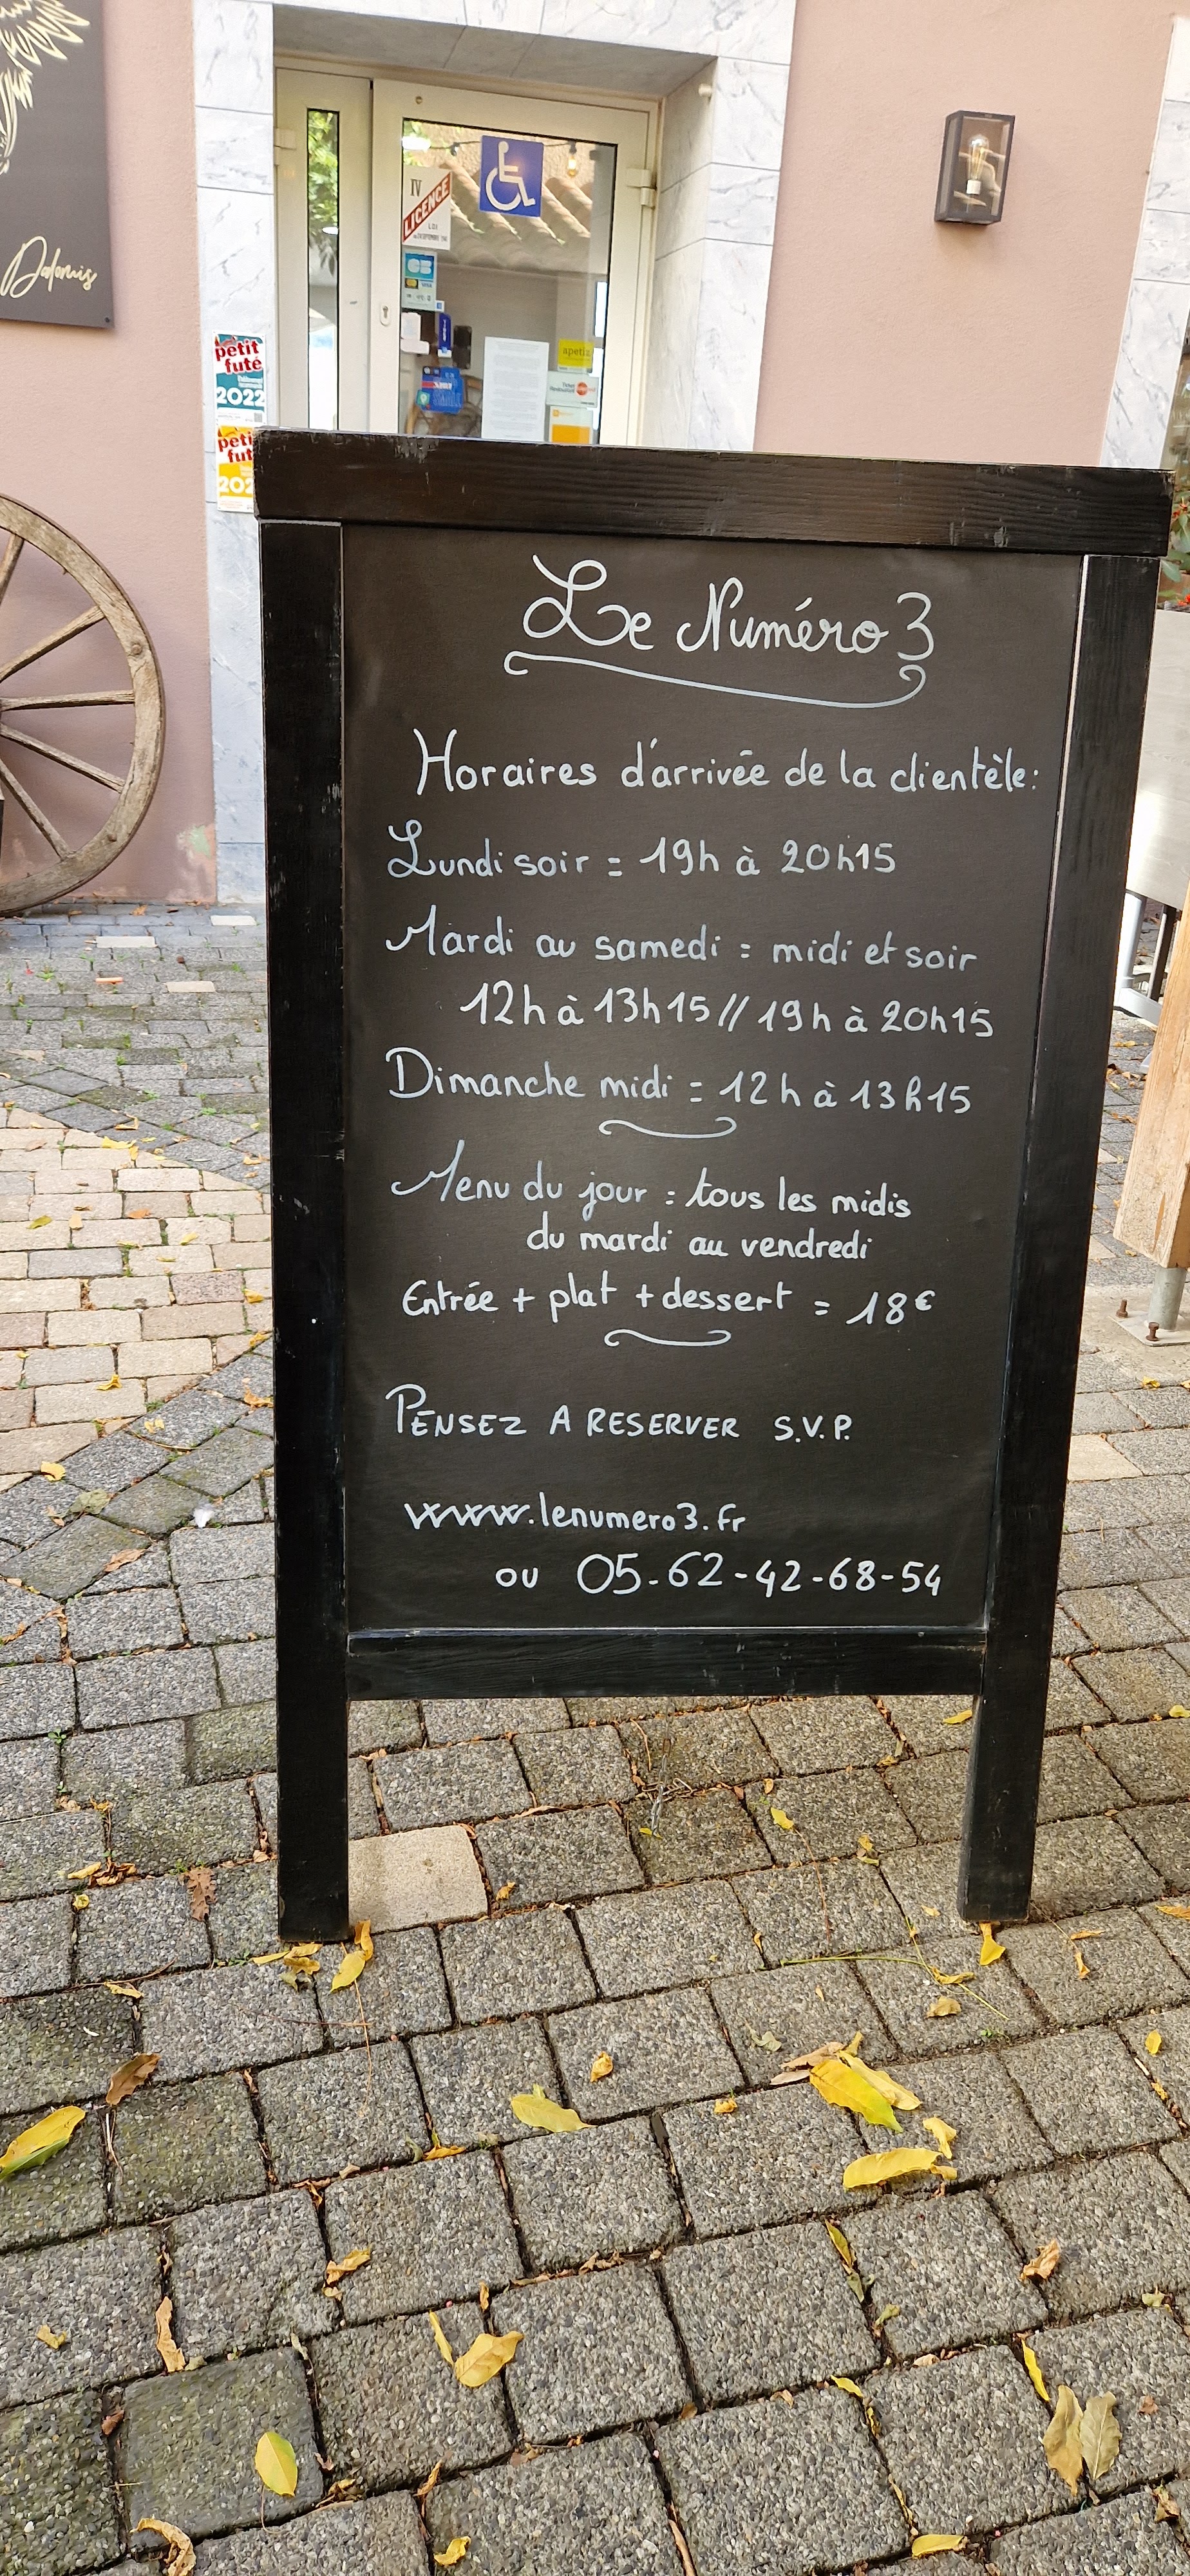 Dalomis
IV
LICENCE
CB
VISA
petit
futé
2022
apetiz
Ticket
Restaurant
Le Numéro 3
Horaires d'arrivée de la clientèle:
Lundi soir = 19h à 20h15
Mardi au samedi = midi et soir
12h à 13h15 // 19h à 20h15
Dimanche midi = 12h à 13h15
Menu du jour = tous les midis
du mardi au vendredi
Entrée + plat + dessert = 18€
PENSEZ A RESERVER S.V.P.
www.lenumero3.fr
ou 05-62-42-68-54